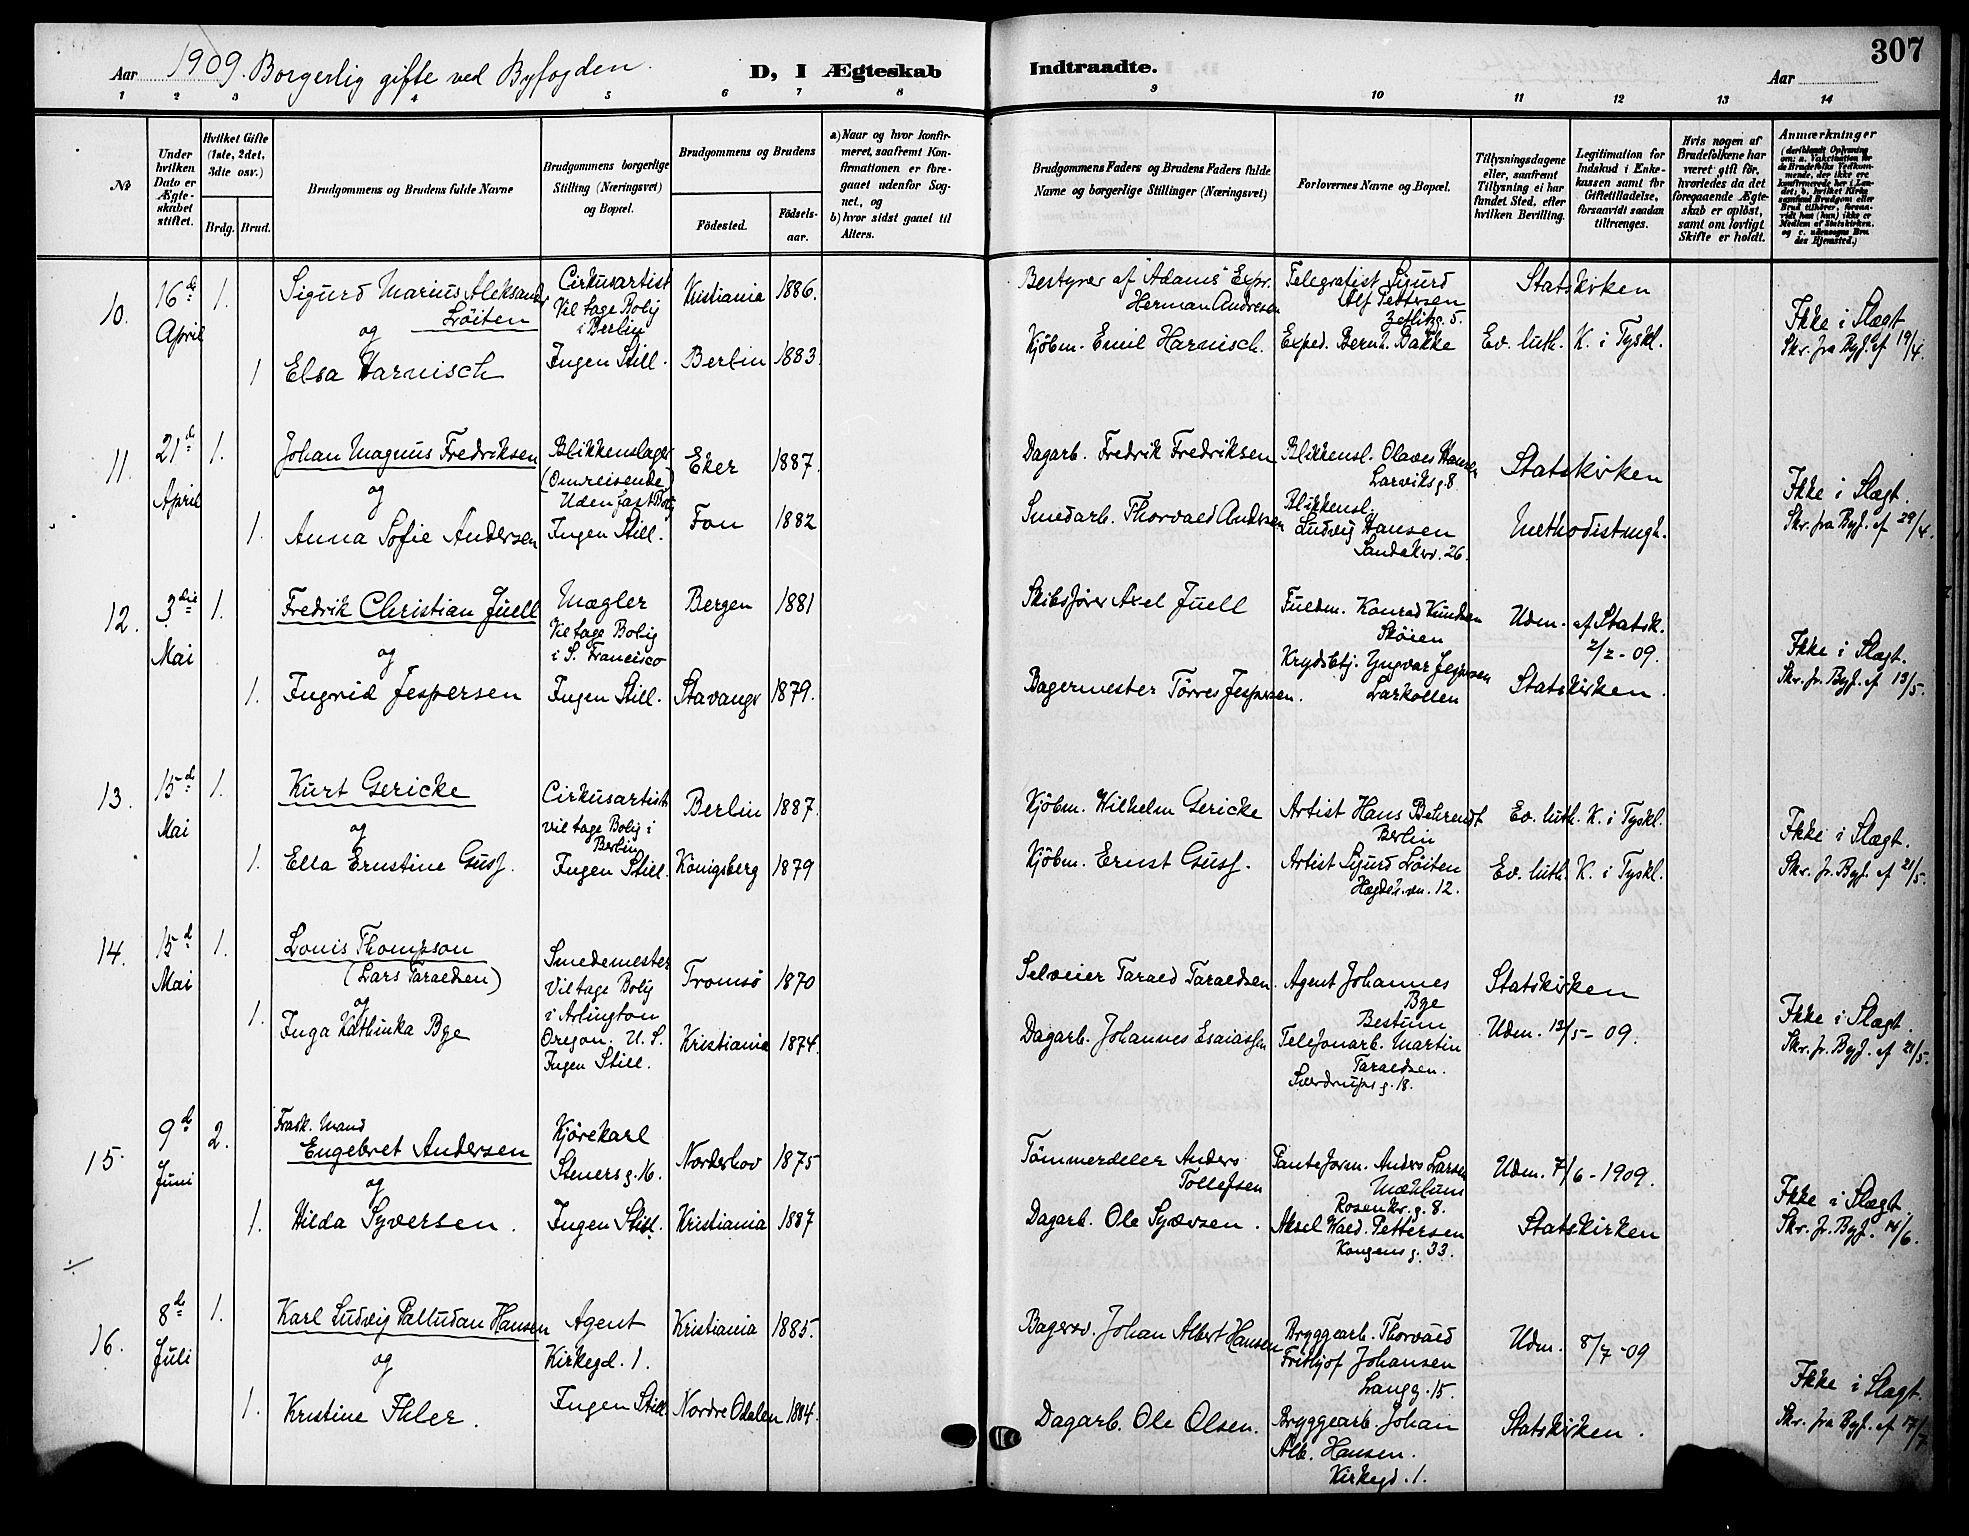 Aar 1909. Borgerlig gifte ved Byfogden. D, I Ægteskab
Indtraadte. Aar 307
1 2 3 4 5 6 7 8
9 10 11 12 13 14
No
Under hvilken Dato er Ægteskabet stiftet.
Hvilket Gifte (1ste, 2det, 3die osv.)
Brdg. Brud.
Brudgommens og Brudens fulde Navne
Brudgommens borgerlige Stilling (Næringsvei) og Bopæl.
Brudgommens og Brudens
Fødested. Fødselsaar.
a) Naar og hvor konfirmeret, saafremt Konfirmationen er foregaaet udenfor Sognet, og
b) hvor sidst gaaet til Alters.
Brudgommens Faders og Brudens Faders fulde Navne og borgerlige Stillinger (Næringsvei)
Forlovernes Navne og Bopæl.
Tillysningsdagene eller, saafremt Tillysning ei har fundet Sted, efter hvilken Bevilling.
Legitimation for Indskud i Enkekassen samt for Giftetilladelse, forsaavidt saadan tiltrænges.
Hvis nogen af Brudefolkene har været gift før, hvorledes da det foregaaende Ægteskab er opløst, samt om lovligt Skifte er holdt.
Anmærkninger
(deriblandt Oplysning om: a. Vakcination for de Brudefolks Vedkommende, der ikke ere konfirmerede her i Landet; b. hvilket Kirkesamfund Brudgom eller Brud tilhører, forsaavidt han (hun) ikke er Medlem af Statskirken, og c. udensogns Brudes Hjemsted.)
10. 16de April 1. Sigurd Marius Aleksander Løiten
og
1 Elsa Harnisch
Cirkusartist
Vil tage Bolig
i Berlin
Ingen Still.
Kristiania 1886.
Berlin 1883
Bestyrer af "Adams" Expr.
Herman Andresen
Kjøbm. Emil Harnisch.
Telegrafist Sigurd
Alf Pettersen
Zetlitzg. 5.
Exped. Bernh. Bakke
Statskirken
Ev. luth. K. i Tyskl.
Ikke i Slægt.
Skr. fra Byf. af 19/4.
11. 21de April 1. Johan Magnus Fredriksen
og
1. Anna Sofie Andersen
Blikkenslager
(Omreisende)
Uden fast Bolig
Ingen Still.
Eker 1887.
Fon 1882
Dagarb. Fredrik Fredriksen
Smedarb. Thorvald Andersen
Blikkensl. Olaves Hansen
Larviksg. 8.
Blikkensl.
Ludvig Hansen
Sandakerv. 26.
Statskirken
Methodistmgh.
Ikke i Slægt.
Skr. fra Byf. af 29/4.
12. 3die Mai 1. Fredrik Christian Juell
og
1. Ingrid Jespersen
Mægler
Vil tage Bolig
i S. Francisco
Ingen Still.
Bergen 1881
Stavanger 1879.
Skibsfører Axel Juell
Bagermester Tørres Jespersen.
Fuldm. Konrad Knudsen
Skøien
Krydsbtj. Yngvar Jespersen
Larkollen
Udm. af Statsk.
2/2 - 09.
Statskirken.
Ikke i Slægt.
Skr. fr. Byf. af 13/5.
13. 15de Mai 1. Kurt Gericke
og
1. Ella Ernstine Gusf.
Cirkusartist
vil tage Bolig i
Berlin
Ingen Still.
Berlin 1887.
Königsberg 1879
Kjøbm. Wilhelm Gericke
Kjøbm. Ernst Gusf.
Artist Hans Behrendt
Berlin
Artist Sigurd Løiten
Hægdeh.vn. 12.
Ev. luth. K. i Tyskl.
Ev. luth. K. i Tyskl.
Ikke i Slægt.
Skr. fr. Byf. af 21/5.
14. 15d Mai 1. Louis Thompson
(Lars Taraldsen)
og
1. Inga Kathinka Bye
Smedemester
Vil tage Bolig
i Arlington
Oregon. U. S.
Ingen Still.
Tromsø 1870
Kristiania 1874.
Selveier Tarald Taraldsen.
Dagarb. Johannes Esaiassen
Agent Johannes
Bye
Bestum
Telefonarb. Martin
Taraldsen.
Sverdrups g. 18.
Statskirken
Udm. 12/5 - 09.
Ikke i Slægt.
Skr. fr. Byf. af 21/5.
15. 9d Juni 2. Frask. Mand
Engebret Andersen
og
1. Hilda Syversen.
Kjørekarl
Stenersg. 16.
Ingen Still.
Norderhov 1875
Kristiania 1887
Tømmerdeler Anders
Tollefsen
Dagarb. Ole Syversen.
Panteform. Anders Larsen
Mæhlum
Rosenkr. g. 8.
Aksel Wald. Pettersen
Kongens g. 33.
Udm. 7/6 - 1909.
Statskirken
Ikke i Slægt.
Skr. fr. Byf. 14/6.
16. 8de Juli 1. Karl Ludvig Palludan Hansen
og
1. Kristine Ihler.
Agent
Kirkegd. 1.
Ingen Still.
Kristiania 1885.
Nordre Odalen 1884.
Bagersv. Johan Albert Hansen
Dagarb. Ole Olsen.
Bryggearb. Thorvald
Frithjof Johansen
Langg. 15.
Bryggearb. Johan
Alb. Hansen.
Kirkegd. 1.
Udm. 8/7 - 09
Statskirken.
Ikke i Slægt.
Skr. fra Byf. af 17/7